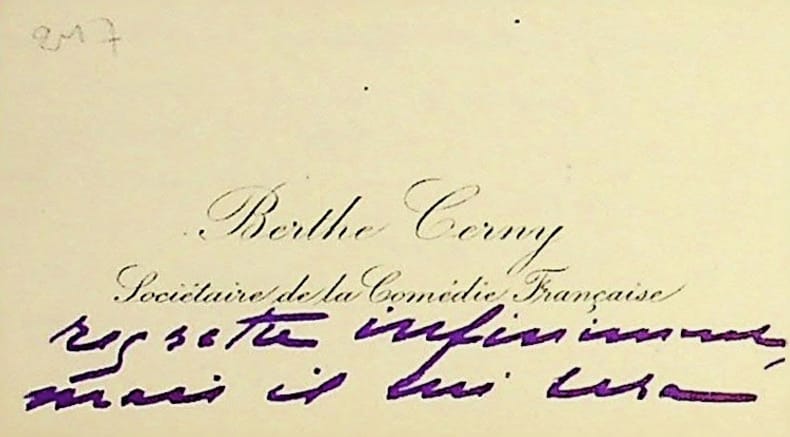 217
Berthe Cerny
Sociétaire de la Comédie Française
regrette infiniment,
mais il lui sera